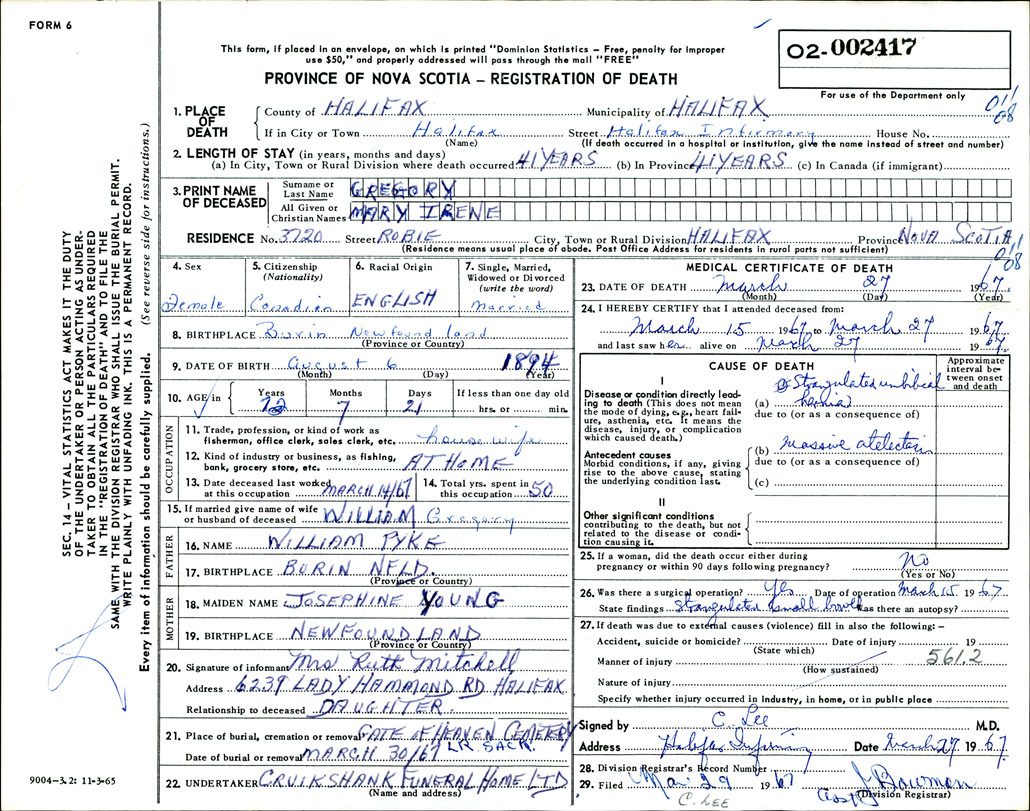 FORM 6
This form, if placed in an envelope, on which is printed "Dominion Statistics – Free, penalty for improper
use $50," and properly addressed will pass through the mail "FREE"
PROVINCE OF NOVA SCOTIA – REGISTRATION OF DEATH
02-002417
For use of the Department only
011
08
SEC. 14 – VITAL STATISTICS ACT MAKES IT THE DUTY
OF THE UNDERTAKER OR PERSON ACTING AS UNDER-
TAKER TO OBTAIN ALL THE PARTICULARS REQUIRED
IN THE "REGISTRATION OF DEATH" AND TO FILE THE
SAME WITH THE DIVISION REGISTRAR WHO SHALL ISSUE THE BURIAL PERMIT.
WRITE PLAINLY WITH UNFADING INK. THIS IS A PERMANENT RECORD.
Every item of information should be carefully supplied. (See reverse side for instructions.)
1. PLACE OF DEATH
County of HALIFAX Municipality of HALIFAX
If in City or Town Halifax Street Halifax Infirmary House No.
(Name) (If death occurred in a hospital or institution, give the name instead of street and number)
2. LENGTH OF STAY (in years, months and days)
(a) In City, Town or Rural Division where death occurred 41 YEARS (b) In Province 41 YEARS (c) In Canada (if immigrant)
3. PRINT NAME OF DECEASED
Surname or Last Name GREGORY
All Given or Christian Names MARY IRENE
RESIDENCE No. 3720 Street ROBIE City, Town or Rural Division HALIFAX Province NOVA SCOTIA
(Residence means usual place of abode. Post Office Address for residents in rural parts not sufficient)
011
08
4. Sex
Female
5. Citizenship (Nationality)
Canadian
6. Racial Origin
ENGLISH
7. Single, Married, Widowed or Divorced (write the word)
married
8. BIRTHPLACE Burin Newfoundland
(Province or Country)
9. DATE OF BIRTH August 6 1894
(Month) (Day) (Year)
10. AGE in Years Months Days If less than one day old
72 7 21 hrs. or min.
OCCUPATION
11. Trade, profession, or kind of work as
fisherman, office clerk, sales clerk, etc. housewife
12. Kind of industry or business, as fishing,
bank, grocery store, etc. AT HOME
13. Date deceased last worked at this occupation MARCH 14/67
14. Total yrs. spent in this occupation 50
15. If married give name of wife
or husband of deceased WILLIAM Gregory
FATHER
16. NAME WILLIAM PYKE
17. BIRTHPLACE BURIN NFLD.
(Province or Country)
MOTHER
18. MAIDEN NAME JOSEPHINE YOUNG
19. BIRTHPLACE NEWFOUNDLAND
(Province or Country)
20. Signature of informant Mrs Ruth Mitchell
Address 6239 LADY HAMMOND RD HALIFAX
Relationship to deceased DAUGHTER
21. Place of burial, cremation or removal GATE OF HEAVEN CEMETERY
LR. SACK.
Date of burial or removal MARCH 30/67
22. UNDERTAKER CRUIKSHANK FUNERAL HOME LTD
(Name and address)
9004-3.2: 11-3-65
MEDICAL CERTIFICATE OF DEATH
23. DATE OF DEATH March 27 1967
(Month) (Day) (Year)
24. I HEREBY CERTIFY that I attended deceased from:
March 15 1967 to March 27 1967
and last saw her alive on March 27 1967.
CAUSE OF DEATH
Approximate interval between onset and death
I
Disease or condition directly leading to death (This does not mean
the mode of dying, e.g., heart failure, asthenia, etc. It means the
disease, injury, or complication
which caused death.)
(a) Strangulated umbilical hernia
due to (or as a consequence of)
Antecedent causes
Morbid conditions, if any, giving
rise to the above cause, stating
the underlying condition last.
(b) Massive atelectasis
due to (or as a consequence of)
(c)
II
Other significant conditions
contributing to the death, but not
related to the disease or condition causing it.
25. If a woman, did the death occur either during
pregnancy or within 90 days following pregnancy? No
(Yes or No)
26. Was there a surgical operation? Yes Date of operation March 15 1967.
State findings Strangulated small bowel Was there an autopsy?
27. If death was due to external causes (violence) fill in also the following:–
Accident, suicide or homicide? Date of injury 19
(State which)
Manner of injury 561.2
(How sustained)
Nature of injury
Specify whether injury occurred in industry, in home, or in public place
Signed by C. Lee M.D.
Address Halifax Infirmary Date March 27 1967.
28. Division Registrar's Record Number
29. Filed Mar 29 1967 J Bowman
(Division Registrar)
C. LEE